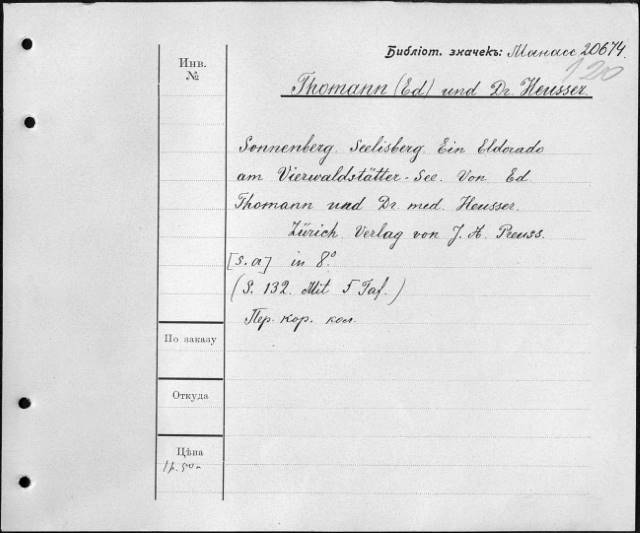 Библіот. значекъ: Манасс 20674.
120
Инв.
№
Thomann (Ed) und Dr. Heusser
Sonnenberg. Seelisberg. Ein Eldorado
am Vierwaldstätter-See. Von Ed
Thomann und Dr. med. Heusser.
Zürich. Verlag von J. A. Preuss.
[s. a] in 8.º
(S. 132. Mit 5 Taf.)
Пер. кор. кол.
По заказу
Откуда
Цѣна